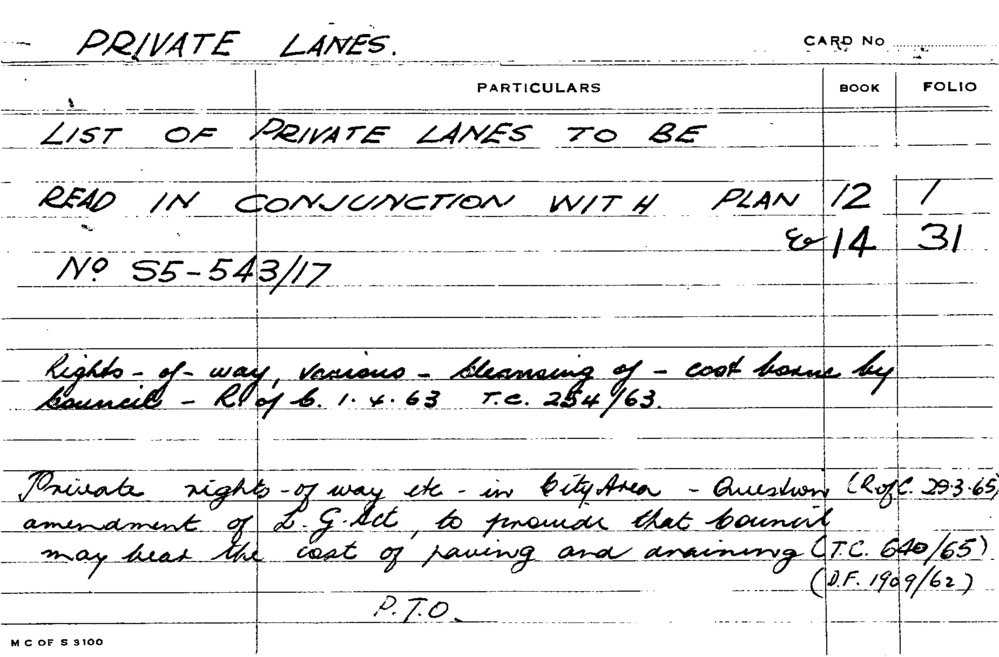 PRIVATE LANES. CARD No
PARTICULARS BOOK FOLIO
LIST OF PRIVATE LANES TO BE
READ IN CONJUNCTION WITH PLAN 12 1
& 14 31
No S5-543/17
Rights-of-way, various - cleansing of - cost borne by
Council - R. of C. 1.4.63 T.C. 254/63.
Private rights-of way etc - in City Area - Question (R of C. 29.3.65)
amendment of L.G. Act, to provide that Council
may bear the cost of paving and draining (T.C. 640/65)
(D.F. 1909/62)
P.T.O.
M C OF S 3100